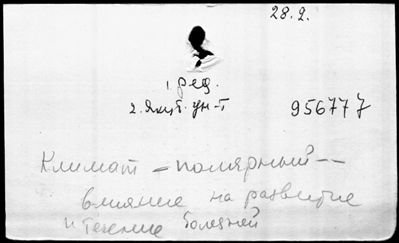 28.2.
1. ред.
2. Якут. ун-т 956777
Климат - полярный --
влияние на развитие
и течение болезней